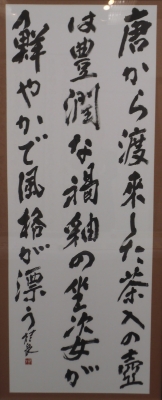 唐から渡来した茶入の壺
は豊潤な褐釉の坐姿が
鮮やかで風格が漂う